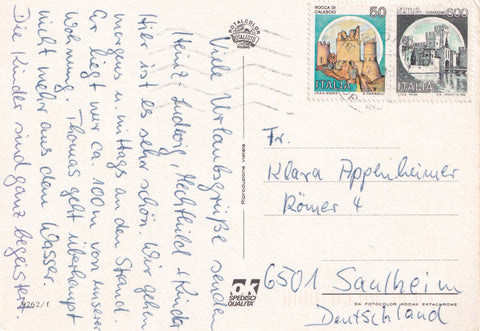 Viele Urlaubsgrüße senden
Heinz-Ludwig, Mechthild + Kinder
Hier ist es sehr schön. Wir gehen
morgens u. mittags an den Strand.
Er liegt nur ca. 100m von unserer
Wohnung. Thomas geht überhaupt
nicht mehr aus dem Wasser.
Die Kinder sind ganz begeistert
4262/1
TOTALCOLOR
Riproduzione vietata
ROCCA DI
CALASCIO
50
ITALIA
500
ITALIA
Fr.
Klara Appenheimer
Römer 4
6501 Saulheim
Deutschland
ok
SPEDISCI
QUALITÀ
DA FOTOCOLOR KODAK EKTACHROME